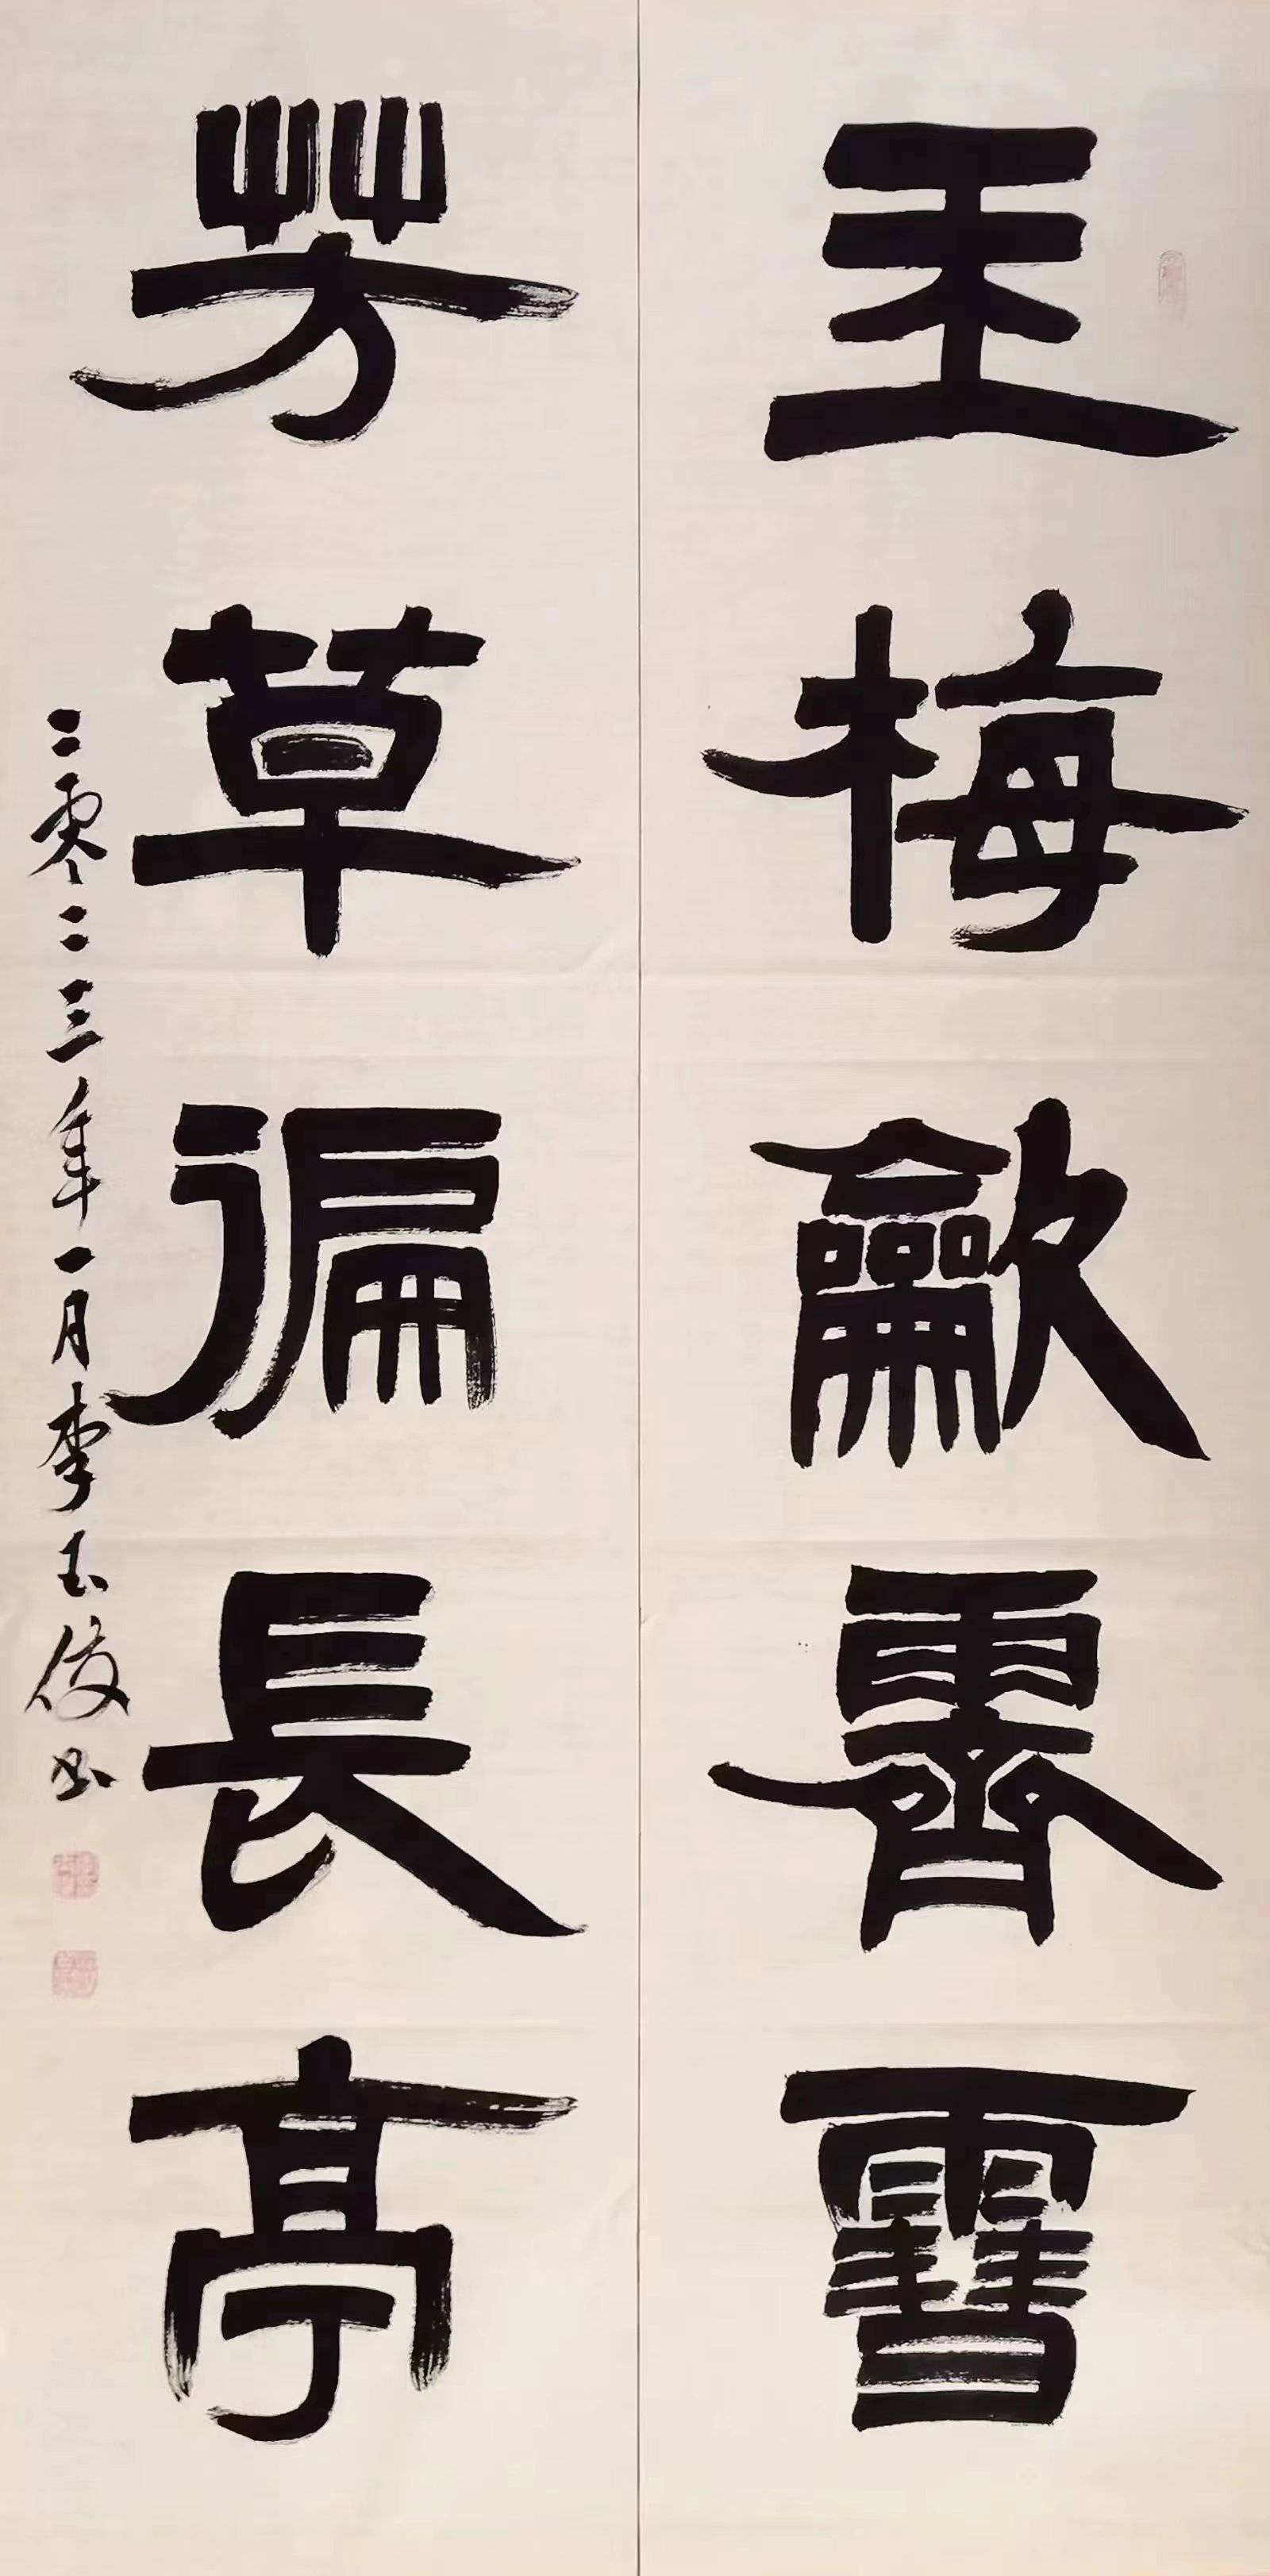 玉梅龡霽䨮
芳草徧長亭
二零二三年一月李玉俊书